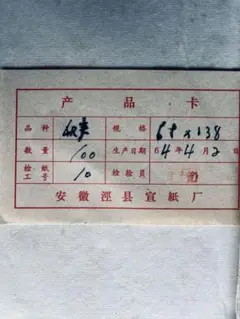 产品卡
品种 规格 68x138
数量 100 生产日期 64年4月2日
检纸工号 10 检验员
安徽泾县宣紙厂